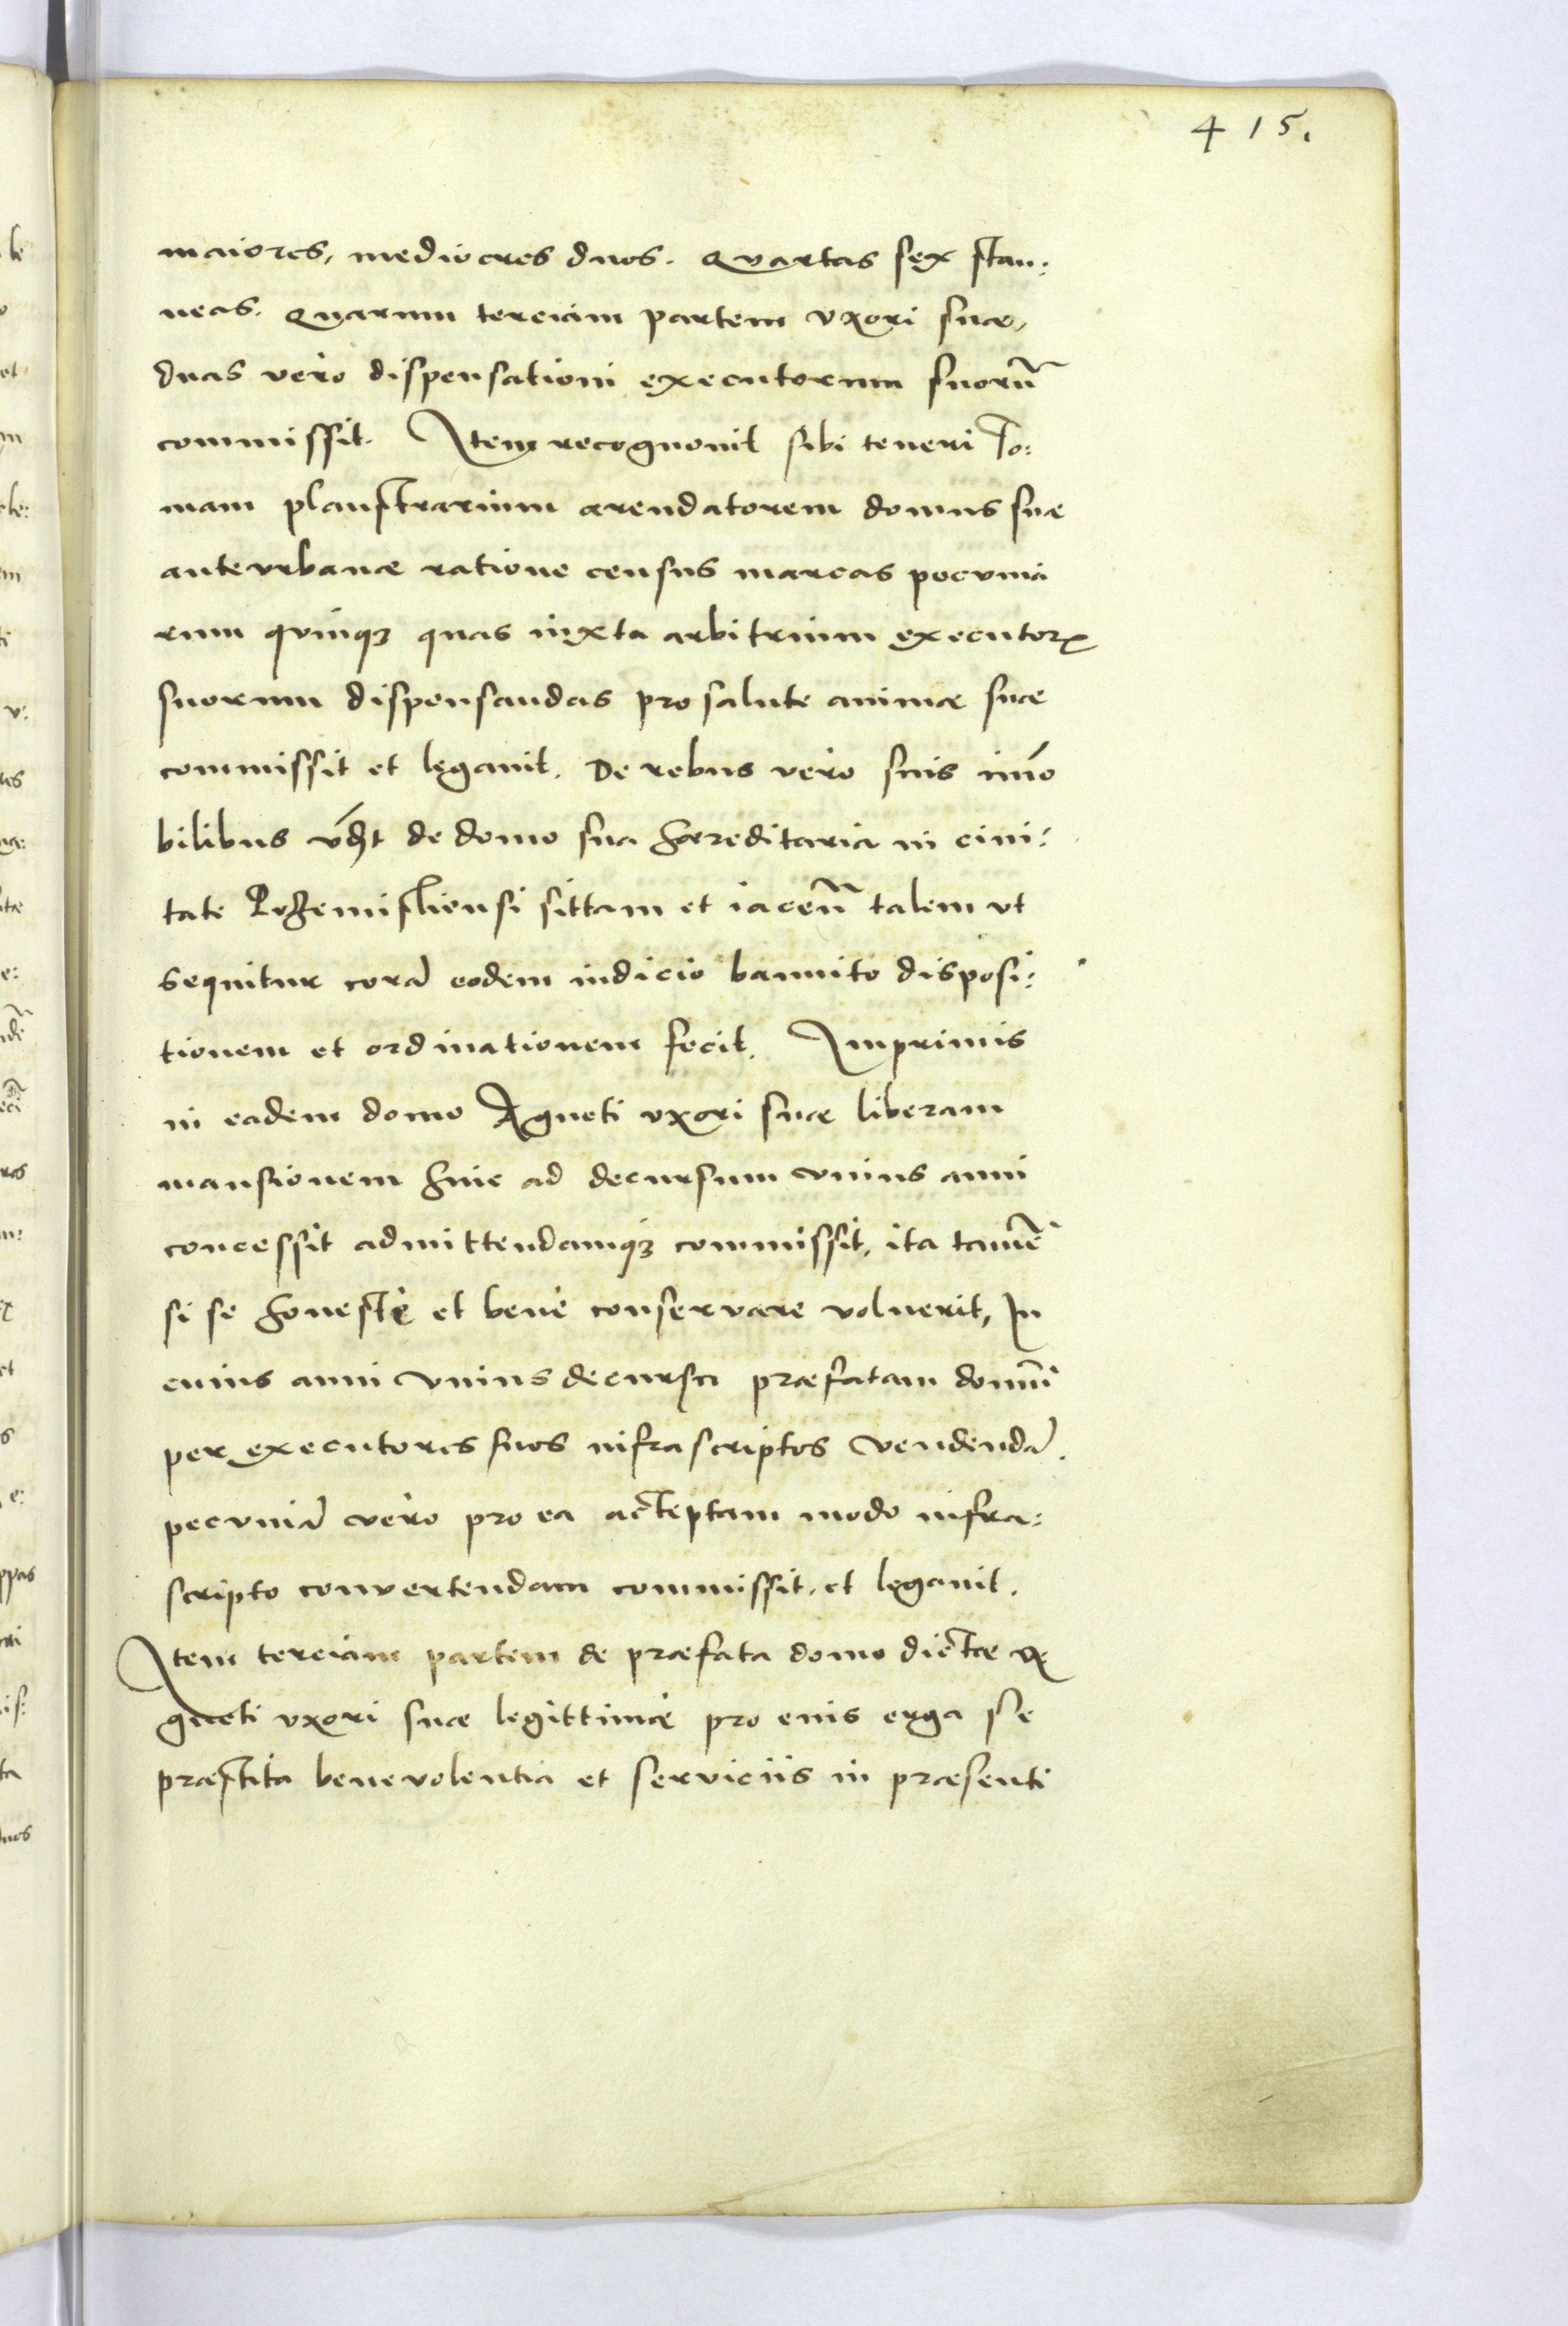 415.
maiores, mediocres duos. Quartas sex stan:
neas. Quarum terciam partem vxori suae,
duas vero dispensationi executorum suorū
commissit. Item recognouit sibi teneri To:
mam plaustrarium arendatorem domus suae
antevrbanae ratione census marcas pecunia
rum quinqȝ quas iuxta arbitrium executorꝝ
suorum dispensandas pro salute animae suae
commissit et legauit. De rebus vero suis im̄o
bilibus vꝫt de domo sua haereditaria in ciui:
tate Przemisliensi sittam et iaceñ talem vt
sequitur corā eodem iudicio bannito disposi:
tionem et ordinationem fecit. Imprimis
in eadem domo Agneti vxori suae liberam
mansionem huic ad decursum vnius anni
concessit admittendamqȝ commissit, ita tamē
si se honestè et benè conservare voluerit, In
cuius anni vnius decursu praefatam domū
per executores suos infrascriptos vendendā.
pecuniā vero pro ea acceptam modo infra:
scripto convertendam commissit, et legauit.
Item terciam partem de praefata domo dictae A
gneti vxori suae legittimae pro eius erga se
praestita benevolentia et serviciis in praesenti